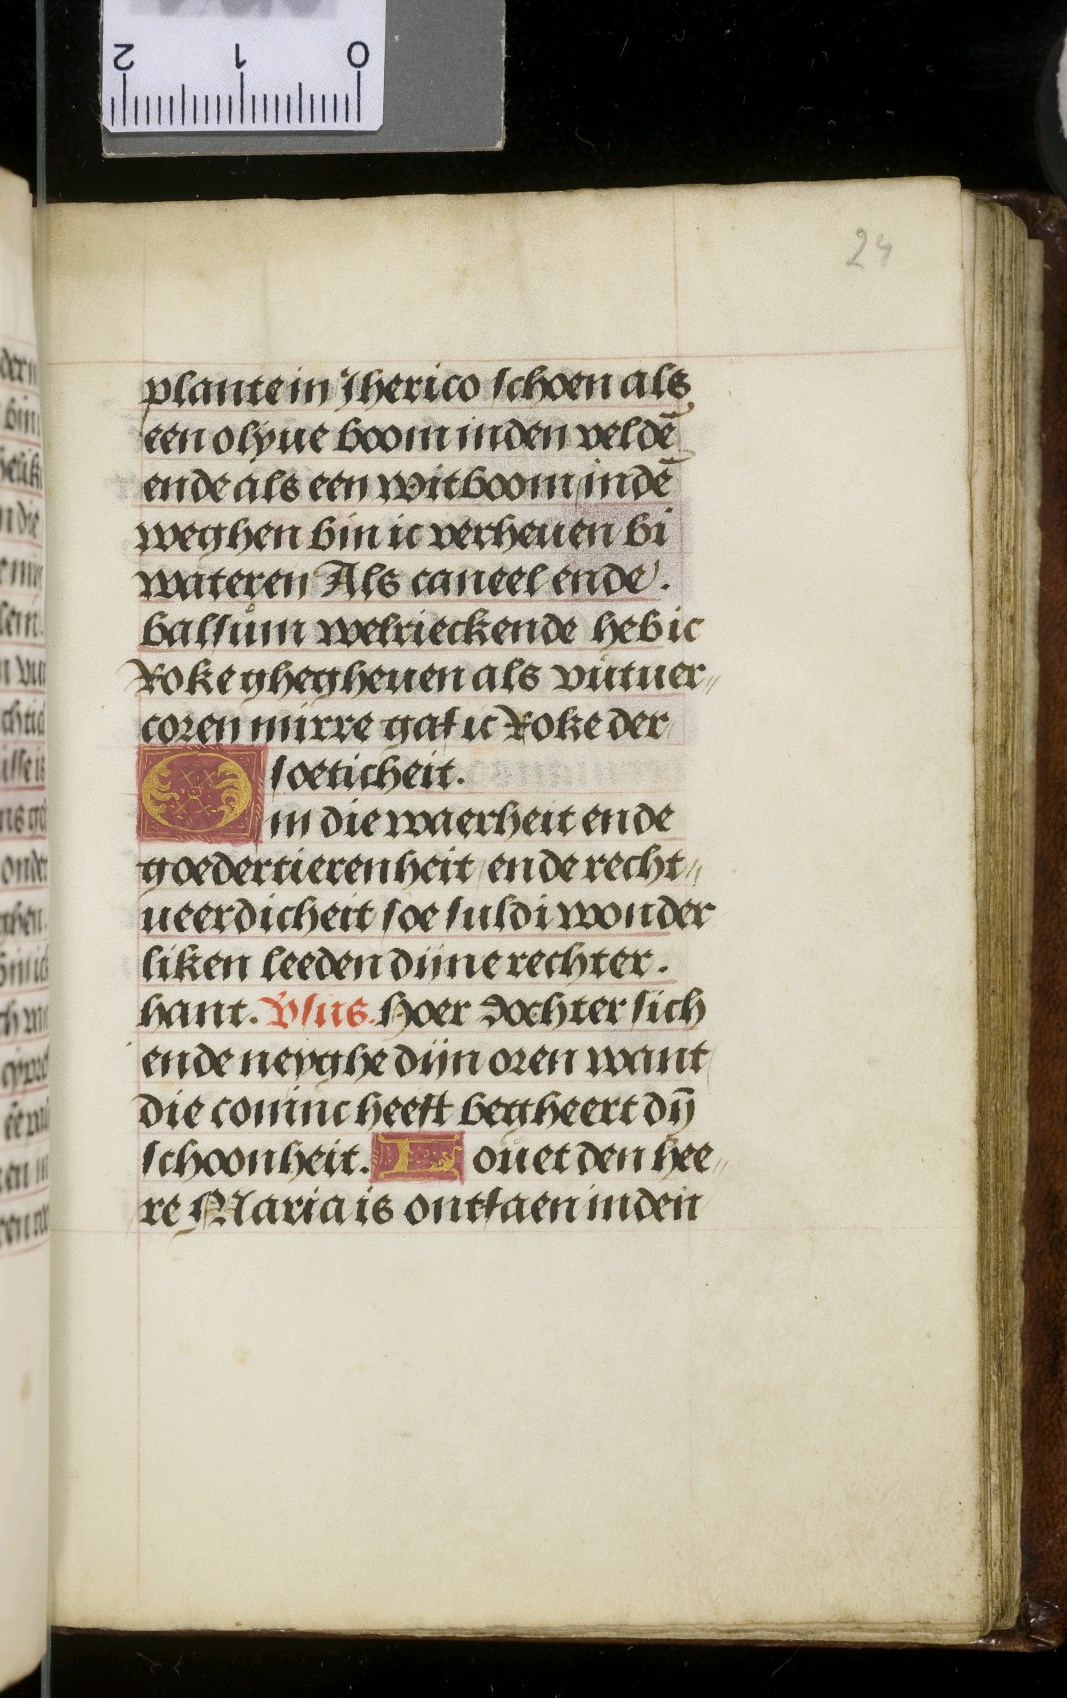 2 1 0
24
plante in Jherico schoen als
een olyue boom inden veldē
ende als een witboom indē
weghen bin ic verheuen bi
wateren Als caneel ende.
balsum welrieckende heb ic
Roke ghegheuen als vutuer〃
coren mirre gaf ic Roke der
soeticheit.
O in die waerheit ende
goedertierenheit ende recht〃
ueerdicheit soe suldi wonder
liken leeden dijne rechter.
hant. Vsus. Hoer dochter sich
ende neyghe dijn oren want
die coninc heeft begheert dȳ
schoonheit. Louet den hee〃
re Maria is ontfaen inden